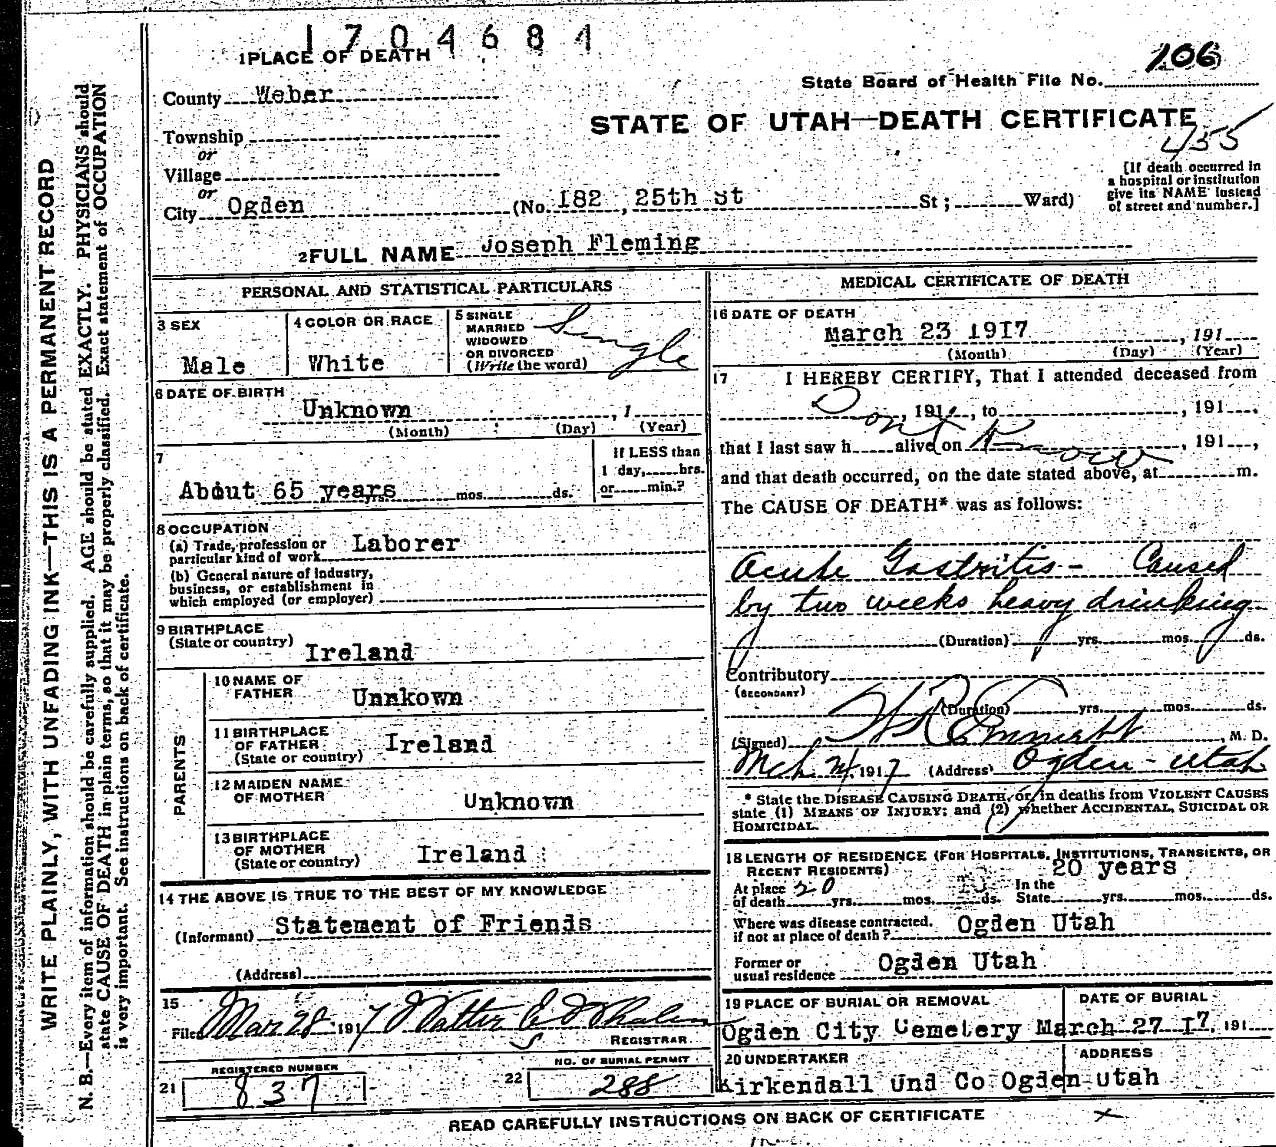 1704684
1 PLACE OF DEATH
106
State Board of Health File No.
County Weber
STATE OF UTAH—DEATH CERTIFICATE
455
Township
or
Village
or
City Ogden (No. 182, 25th St St; Ward)
[If death occurred in
a hospital or institution
give its NAME instead
of street and number.]
2 FULL NAME Joseph Fleming
PERSONAL AND STATISTICAL PARTICULARS
3 SEX
Male
4 COLOR OR RACE
White
5 SINGLE
MARRIED
WIDOWED
OR DIVORCED
(Write the word)
Single
6 DATE OF BIRTH
Unknown , 1
(Month) (Day) (Year)
7
About 65 years mos. ds.
If LESS than
1 day, hrs.
or min.?
8 OCCUPATION
(a) Trade, profession or
particular kind of work Laborer
(b) General nature of industry,
business, or establishment in
which employed (or employer)
9 BIRTHPLACE
(State or country)
Ireland
PARENTS
10 NAME OF
FATHER
Unnkown
11 BIRTHPLACE
OF FATHER
(State or country) Ireland
12 MAIDEN NAME
OF MOTHER
Unknown
13 BIRTHPLACE
OF MOTHER
(State or country) Ireland
14 THE ABOVE IS TRUE TO THE BEST OF MY KNOWLEDGE
(Informant) Statement of Friends
(Address)
15
Filed Mar 28 1917 Walter E Whalen
REGISTRAR
21 REGISTERED NUMBER
837
22 NO. OF BURIAL PERMIT
288
MEDICAL CERTIFICATE OF DEATH
16 DATE OF DEATH
March 23 1917 , 191
(Month) (Day) (Year)
17 I HEREBY CERTIFY, That I attended deceased from
, 191 , to , 191 ,
Dont Know
that I last saw h alive on , 191 ,
and that death occurred, on the date stated above, at m.
The CAUSE OF DEATH* was as follows:
Acute Gastritis - Caused
by two weeks heavy drinking
(Duration) yrs. mos. ds.
Contributory
(SECONDARY)
(Duration) yrs. mos. ds.
(Signed) H R Emmett , M. D.
Mch 24 1917 (Address) Ogden - Utah
* State the DISEASE CAUSING DEATH, or, in deaths from VIOLENT CAUSES
state (1) MEANS OF INJURY; and (2) whether ACCIDENTAL, SUICIDAL OR
HOMICIDAL.
18 LENGTH OF RESIDENCE (FOR HOSPITALS, INSTITUTIONS, TRANSIENTS, OR
RECENT RESIDENTS) 20 years
At place 20 In the
of death yrs. mos. ds. State yrs. mos. ds.
Where was disease contracted,
if not at place of death? Ogden Utah
Former or
usual residence Ogden Utah
19 PLACE OF BURIAL OR REMOVAL
Ogden City Cemetery
DATE OF BURIAL
March 27 17, 191
20 UNDERTAKER
Kirkendall Und Co
ADDRESS
Ogden utah
READ CAREFULLY INSTRUCTIONS ON BACK OF CERTIFICATE
WRITE PLAINLY, WITH UNFADING INK—THIS IS A PERMANENT RECORD
N. B.—Every item of information should be carefully supplied. AGE should be stated EXACTLY. PHYSICIANS should
state CAUSE OF DEATH in plain terms, so that it may be properly classified. Exact statement of OCCUPATION
is very important. See instructions on back of certificate.